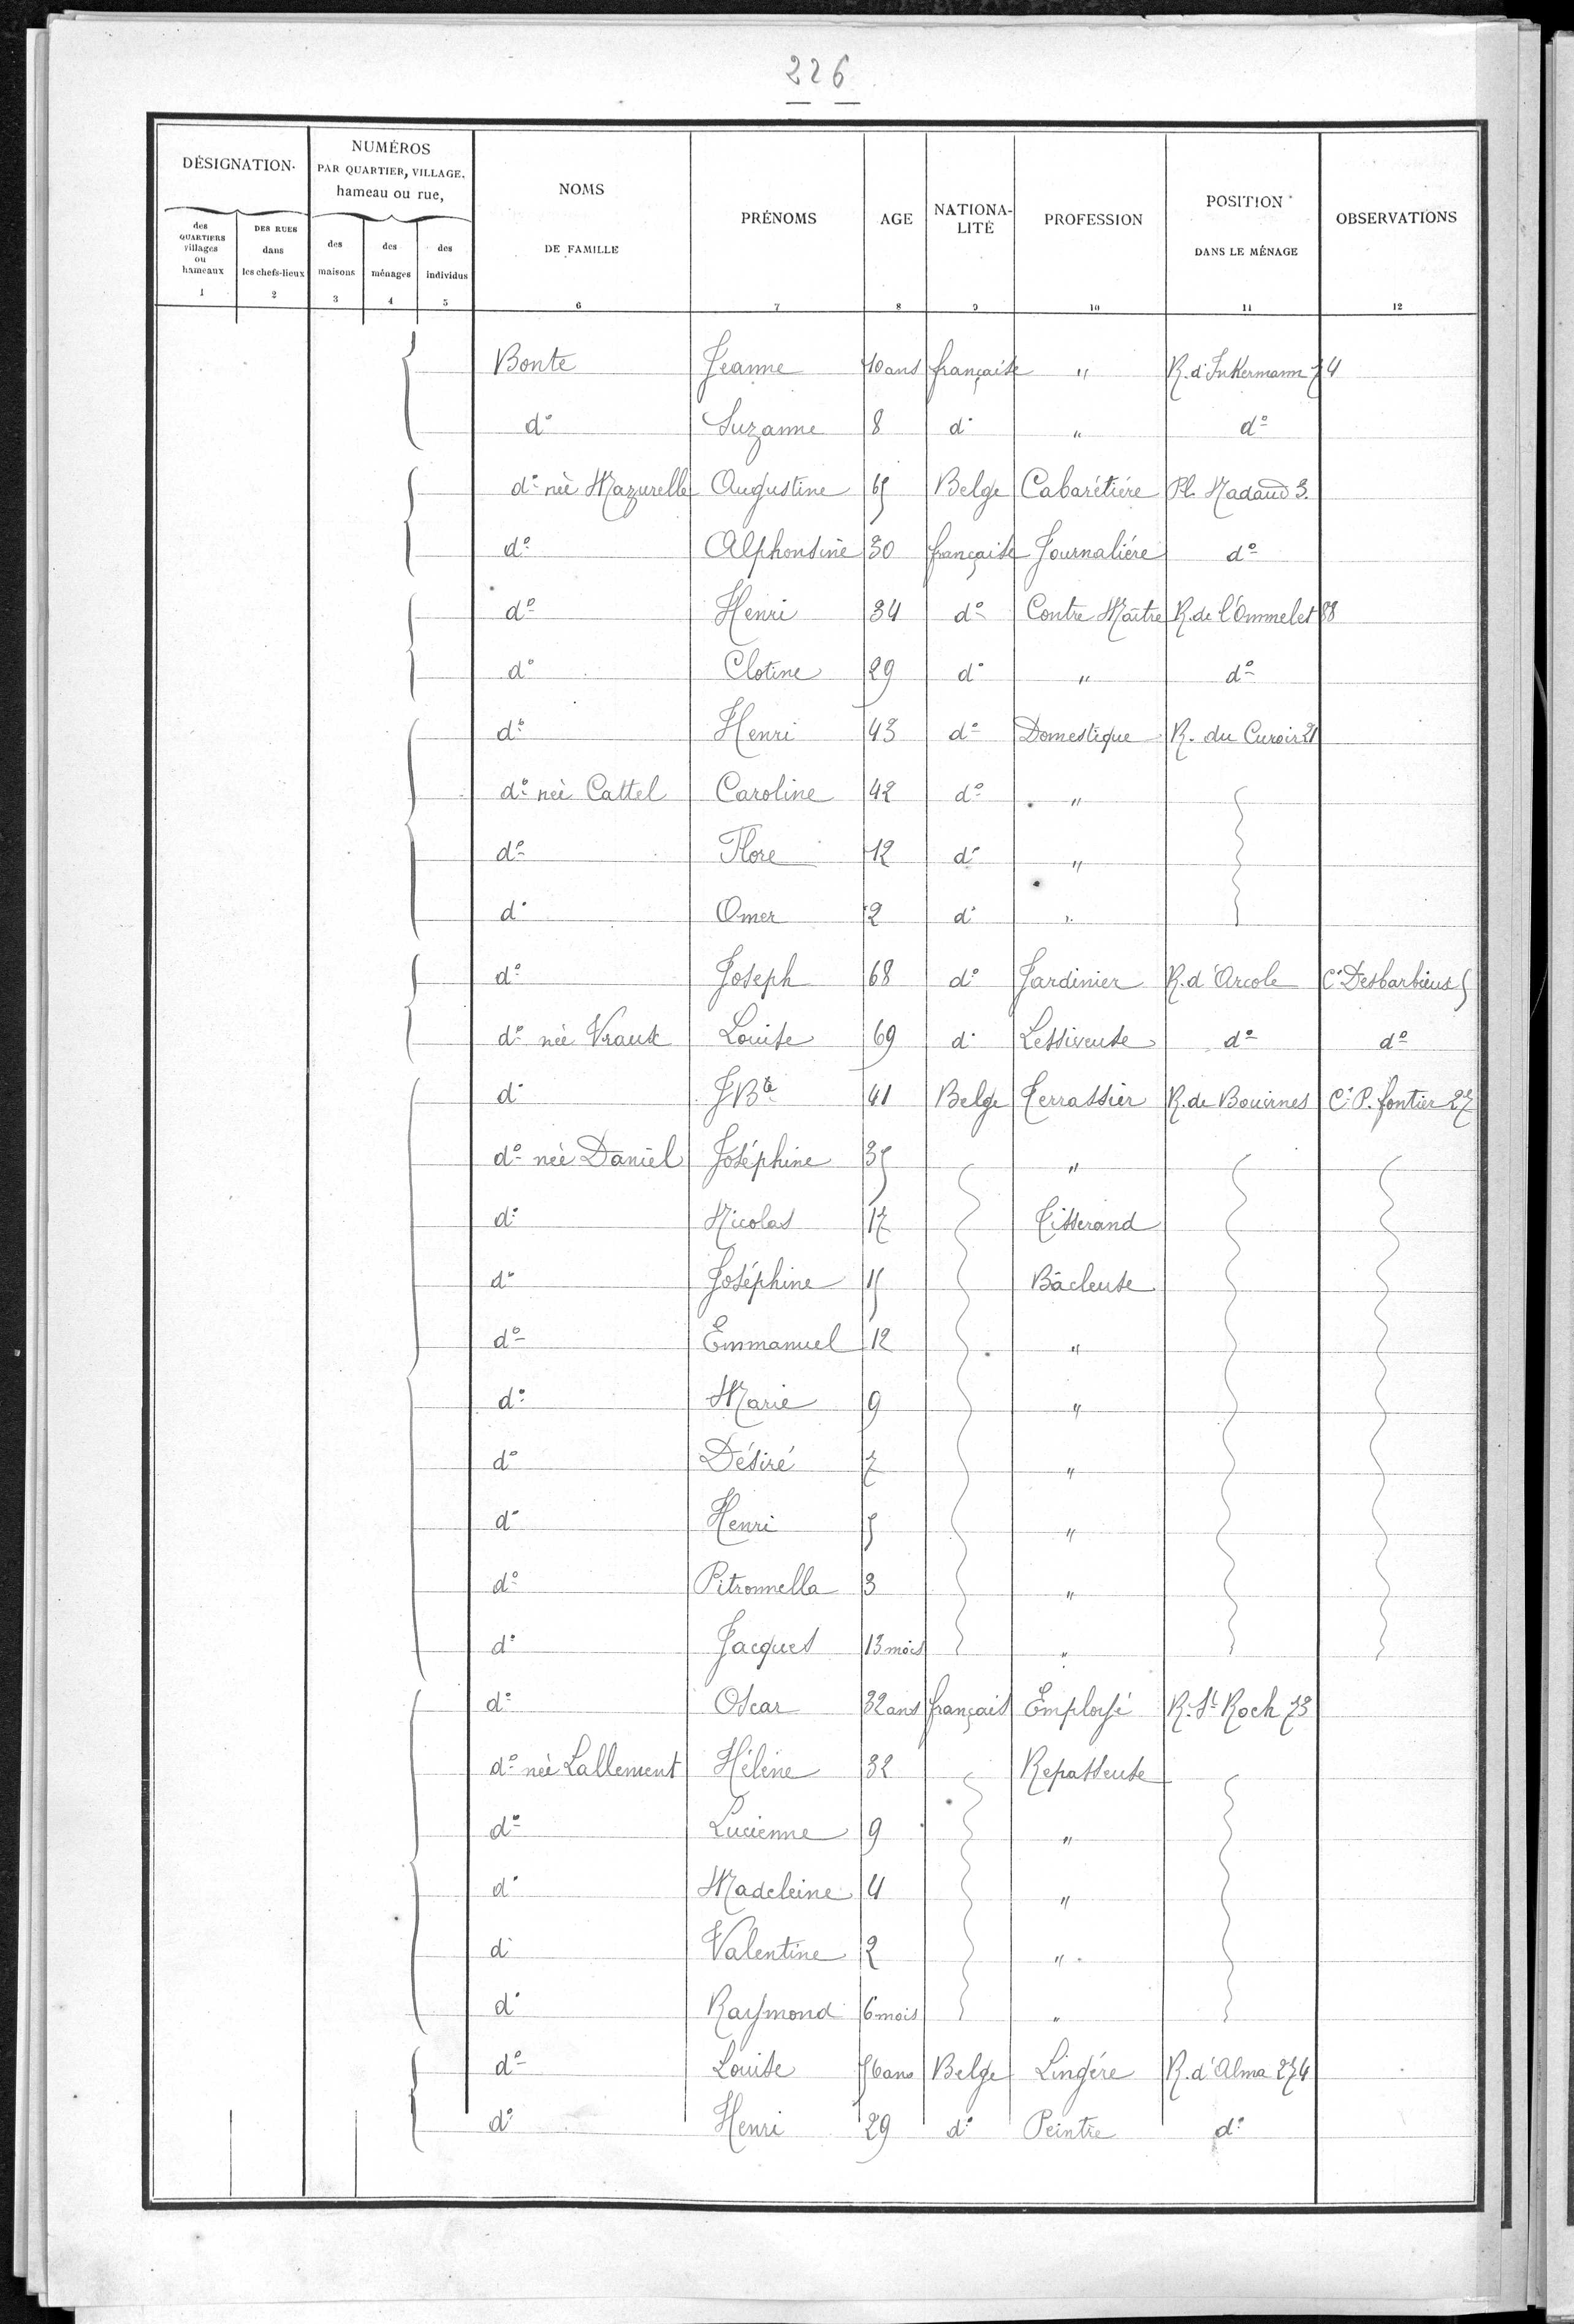 226
DÉSIGNATION.
des QUARTIERS villages ou hameaux
1
DES RUES dans les chefs-lieux
2
NUMÉROS PAR QUARTIER, VILLAGE, hameau ou rue,
des maisons
3
des ménages
4
des individus
5
NOMS DE FAMILLE
6
PRÉNOMS
7
AGE
8
NATIONA-LITÉ
9
PROFESSION
10
POSITION DANS LE MÉNAGE
11
OBSERVATIONS
12
Bonte Jeanne 10 ans française " R. d'Inkermann 74
do Suzanne 8 do " do
do née Mazurelle Augustine 65 Belge Cabarétiére Pl. Nadaud 3.
do Alphonsine 30 française Journaliére do
do Henri 34 do Contre Maître R. de l'Ommelet 88
do Clotine 29 do " do
do Henri 43 do Domestique R. du Curoir 21
do née Cattel Caroline 42 do "
do Flore 12 do "
do Omer 2 do "
do Joseph 68 do Jardinier R. d'Arcole Cr Desbarbieux 5
do née Vraux Louise 69 do Lessiveuse do do
do J Bte 41 Belge Terrassier R. de Bouvines Cr P. fontier 27
do née Daniel Joséphine 35 "
do Nicolas 17 Tisserand
do Joséphine 15 Bâcleuse
do Emmanuel 12 "
do Marie 9 "
do Désiré 7 "
do Henri 5 "
do Pitronnella 3 "
do Jacques 13 mois "
do Oscar 32 ans français Employé R. St Roch 73
do née Lallement Hélène 32 Repasseuse
do Lucienne 9 "
do Madeleine 4 "
do Valentine 2 "
do Raymond 6 mois "
do Louise 56 ans Belge Lingére R. d'Alma 274
do Henri 29 do Peintre do